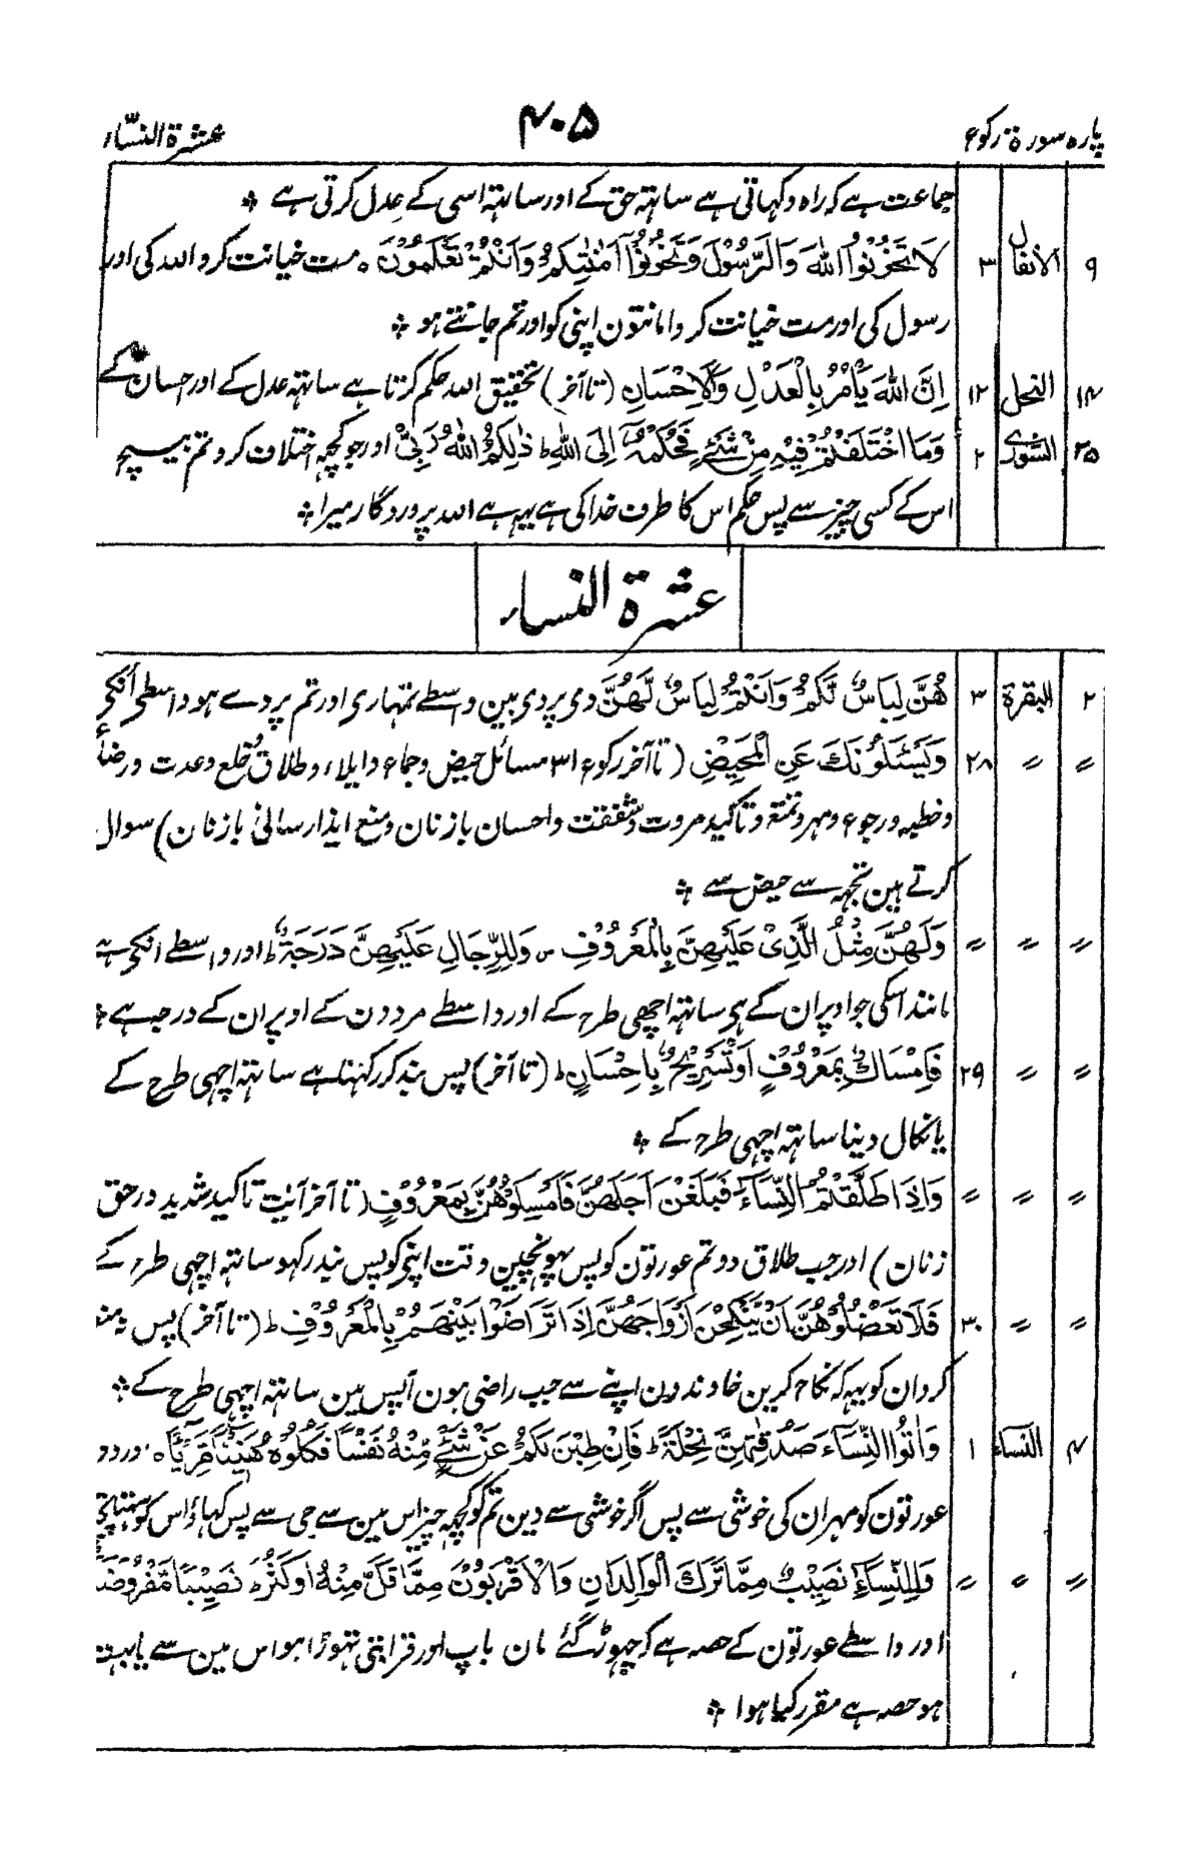 پارہ سورۃ رکوع ۴۰۵ عشرۃ النساء
جماعت ہے کہ راہ دکہاتی ہے ساتہہ حق کے اور ساتہہ اسی کے عدل کرتی ہے
۹ الانفال ۳ لَا تَخُونُوا اللّٰهَ وَالرَّسُوْلَ وَتَخُوْنُوْٓا اَمٰنٰتِكُمْ وَاَنْتُمْ تَعْلَمُوْنَ ہ مت خیانت کرو اللہ کی اور
رسول کی اور مت خیانت کرو امانتون اپنی کو اور تم جانتے ہو
۱۴ النحل ۱۲ اِنَّ اللّٰهَ يَاْمُرُ بِالْعَدْلِ وَالْاِحْسَانِ (تا آخر) تحقیق اللہ حکم کرتا ہے ساتہہ عدل کے اور احسان کے
۲۵ الشوریٰ ۲ وَمَا اخْتَلَفْتُمْ فِيْهِ مِنْ شَيْءٍ فَحُكْمُهٗٓ اِلَى اللّٰهِ ط ذٰلِكُمُ اللّٰهُ رَبِّيْ اور جو کچہہ اختلاف کرو تم بیچ
اس کے کسی چیز سے پس حکم اس کا طرف خدا کی ہے یہہ ہے اللہ پروردگار میرا
عشرۃ النساء
۲ البقرۃ ۳ هُنَّ لِبَاسٌ لَّكُمْ وَاَنْتُمْ لِبَاسٌ لَّهُنَّ وی پردی ہین واسطے تمہاری اور تم پردے ہو واسطے اُنکے
〃 〃 ۲۸ وَيَسْئَلُوْنَكَ عَنِ الْمَحِيْضِ (تا آخر رکوع ۳۱ مسائل حیض و جماع و ایلاء و طلاق و خلع و عدت و رضاع
و خطبہ و رجوع و مہر و تمتع و تاکید مروت و شفقت و احسان بازنان و منع ایذا رسانی بازنان) سوال
کرتے ہین تجہہ سے حیض سے
〃 〃 〃 وَلَهُنَّ مِثْلُ الَّذِيْ عَلَيْهِنَّ بِالْمَعْرُوْفِ وَلِلرِّجَالِ عَلَيْهِنَّ دَرَجَةٌ ط اور واسطے انکے ہے
مانند اسکی جو اوپر ان کے ہے ساتہہ اچھی طرح کے اور واسطے مردون کے اوپر ان کے درجہ ہے
〃 〃 ۲۹ فَاِمْسَاكٌۢ بِمَعْرُوْفٍ اَوْ تَسْرِيْحٌۢ بِاِحْسَانٍ ط (تا آخر) پس بند کر رکہنا ہے ساتہہ اچہی طرح کے
یا نکال دینا ساتہہ اچہی طرح کے
〃 〃 〃 وَاِذَا طَلَّقْتُمُ النِّسَآءَ فَبَلَغْنَ اَجَلَهُنَّ فَاَمْسِكُوْهُنَّ بِمَعْرُوْفٍ (تا آخر آیت تاکید شدید در حق
زنان) اور جب طلاق دو تم عورتون کو پس پہونچین وقت اپنے کو پس بند رکہو ساتہہ اچہی طرح کے
〃 〃 ۳۰ فَلَا تَعْضُلُوْهُنَّ اَنْ يَّنْكِحْنَ اَزْوَاجَهُنَّ اِذَا تَرَاضَوْا بَيْنَهُمْ بِالْمَعْرُوْفِ ط (تا آخر) پس نہ منع
کرو ان کو یہہ کہ نکاح کرین خاوندون اپنے سے جب راضی ہون آپس مین ساتہہ اچہی طرح کے
۴ النساء ۱ وَاٰتُوا النِّسَآءَ صَدُقٰتِهِنَّ نِحْلَةً ط فَاِنْ طِبْنَ لَكُمْ عَنْ شَيْءٍ مِّنْهُ نَفْسًا فَكُلُوْهُ هَنِيْٓئًا مَّرِيْٓئًا ہ اور دو
عورتون کو مہر ان کی خوشی سے پس اگر خوشی سے دین تم کو کچہہ چیز اس مین سے جی سے پس کہاؤ اس کو
〃 〃 〃 وَلِلنِّسَآءِ نَصِيْبٌ مِّمَّا تَرَكَ الْوَالِدَانِ وَالْاَقْرَبُوْنَ مِمَّا قَلَّ مِنْهُ اَوْ كَثُرَ نَصِيْبًا مَّفْرُوْضًا
اور واسطے عورتون کے حصہ ہے کہ چہوڑ گئے مان باپ اور قرابتی تہوڑا ہو اس مین سے یا بہت
ہو حصہ ہے مقرر کیا ہوا